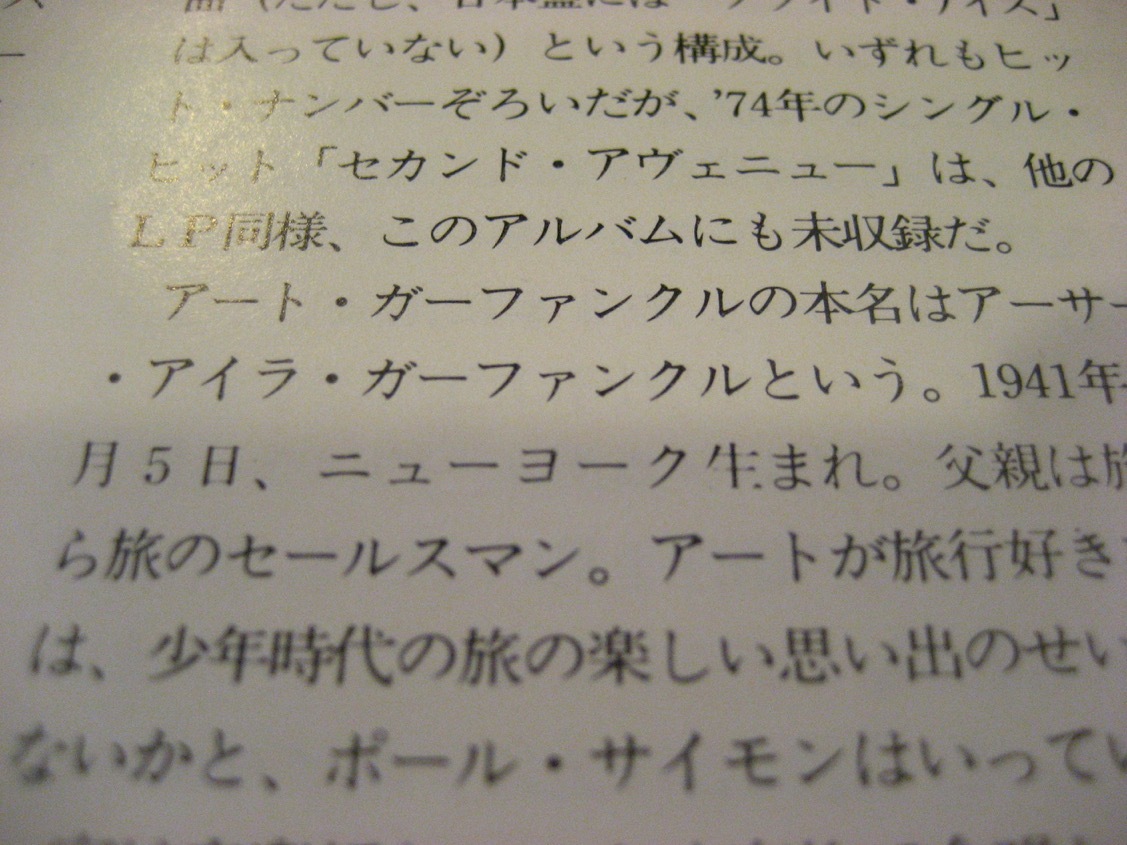 は入っていない）という構成。いずれもヒッ
ト・ナンバーぞろいだが、'74年のシングル・
ヒット「セカンド・アヴェニュー」は、他の
ＬＰ同様、このアルバムにも未収録だ。
アート・ガーファンクルの本名はアーサー
・アイラ・ガーファンクルという。1941年
月５日、ニューヨーク生まれ。父親は旅
ら旅のセールスマン。アートが旅行好き
は、少年時代の旅の楽しい思い出のせい
ないかと、ポール・サイモンはいってい